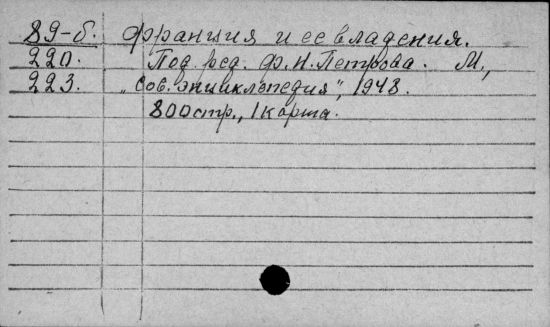 89-б. Франция и ее владения.
220. Под ред. Ф.Н.Петрова. М.,
223. „Сов. энциклопедия", 1948.
800стр., 1 карта.